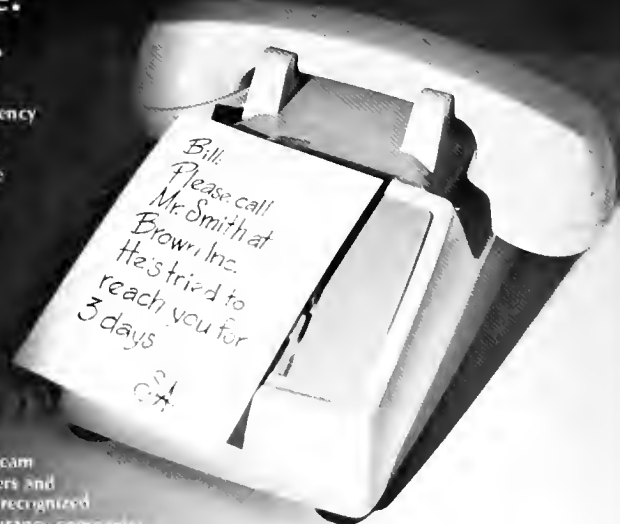 ency
Bill:
Please call
Mr. Smith at
Brown Inc.
He's tried to
reach you for
3 days
ers and
recognized